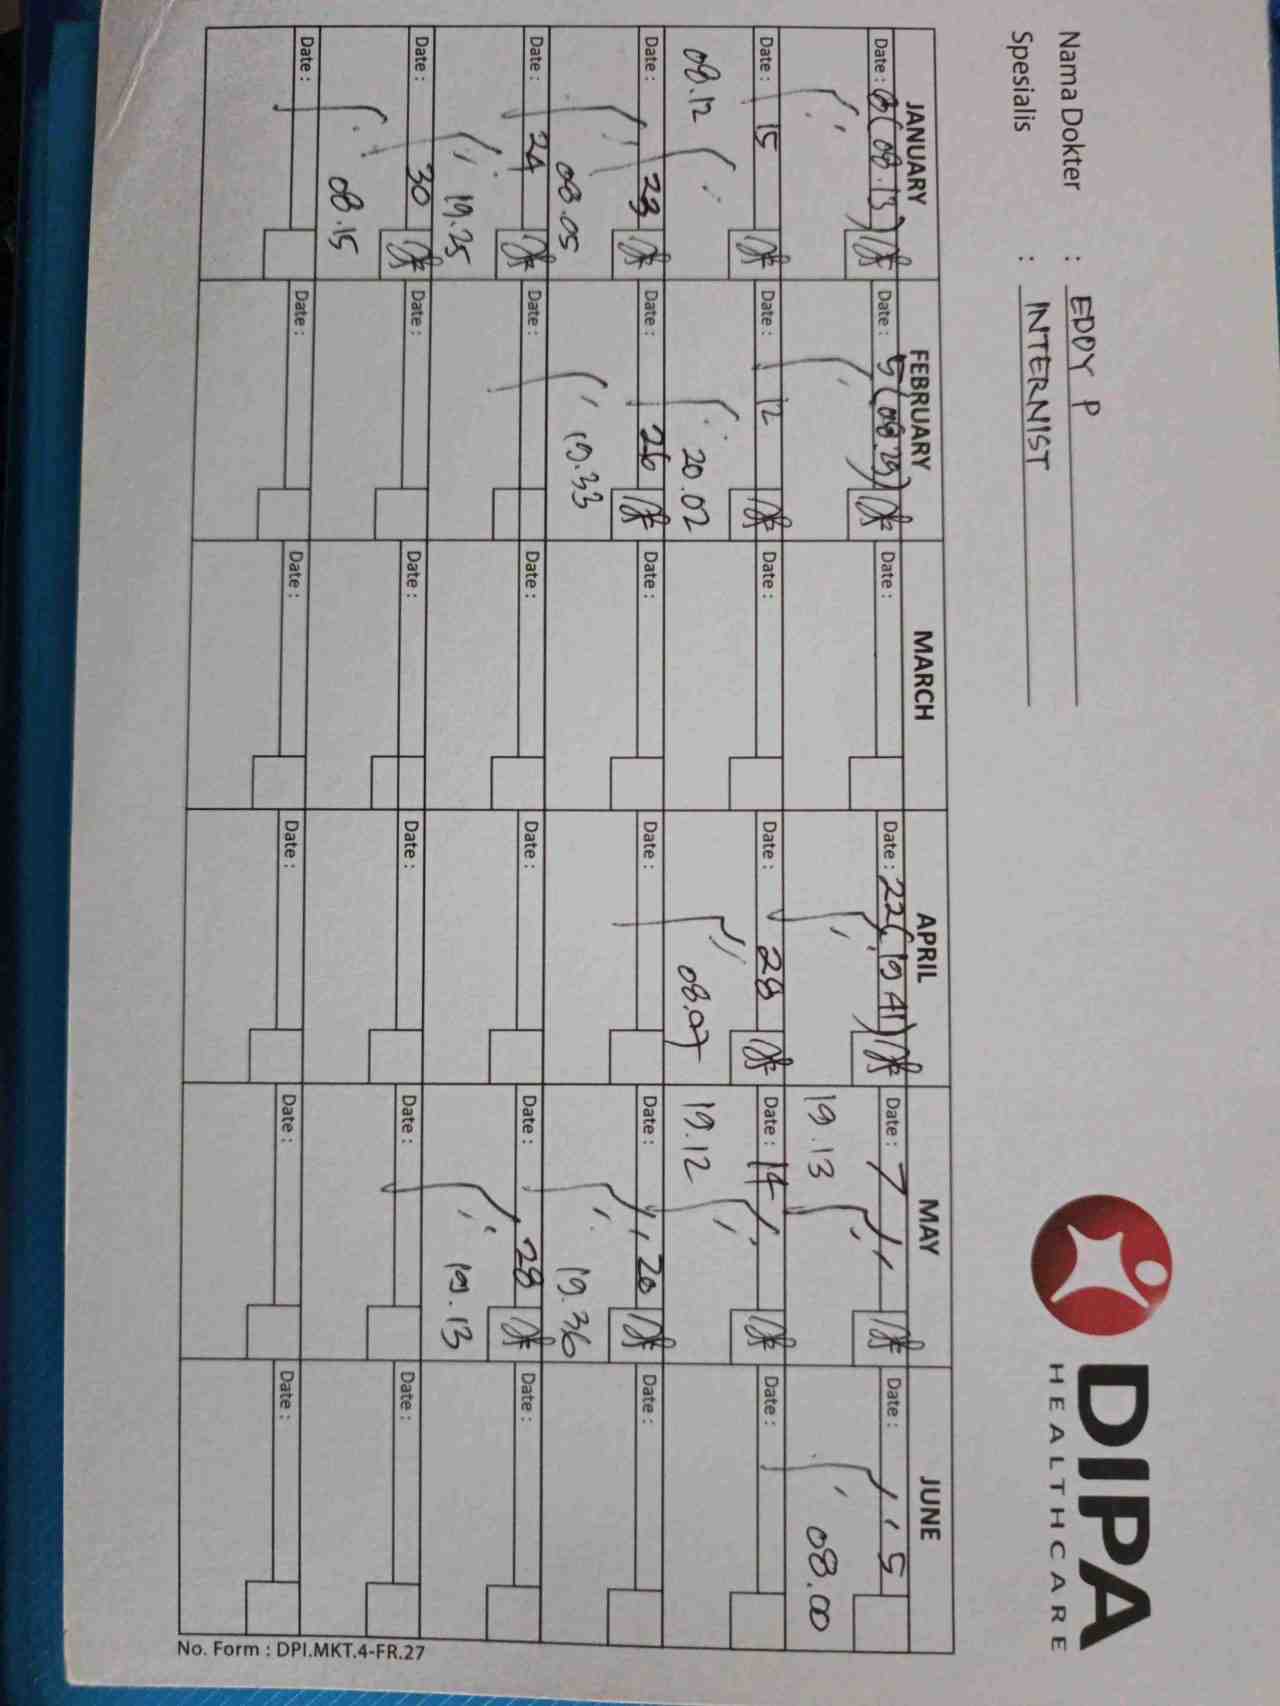 Nama Dokter : EDDY P
Spesialis : INTERNIST
DIPA
HEALTHCARE
JANUARY FEBRUARY MARCH APRIL MAY JUNE
Date : (08.13) Date : 5 (08.29) Date : Date : 22 (19.41) Date : 7 Date : 5
19.13 08.00
Date : 15 Date : 12 Date : Date : 28 Date : 14 Date :
08.12 20.02 08.07 19.12
Date : 23 Date : 26 Date : Date : Date : 20 Date :
08.05 19.33 19.36
Date : 24 Date : Date : Date : Date : 28 Date :
19.25 19.13
Date : 30 Date : Date : Date : Date : Date :
08.15
Date : Date : Date : Date : Date : Date :
No. Form : DPI.MKT.4-FR.27